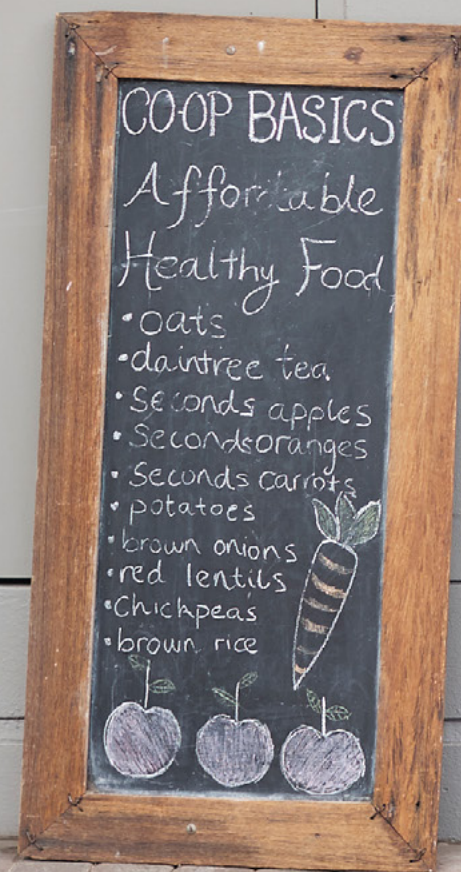 CO-OP BASICS
Affordable
Healthy Food
• oats
• daintree tea
• Seconds apples
• Seconds oranges
• Seconds carrots
• potatoes
• brown onions
• red lentils
• Chickpeas
• brown rice